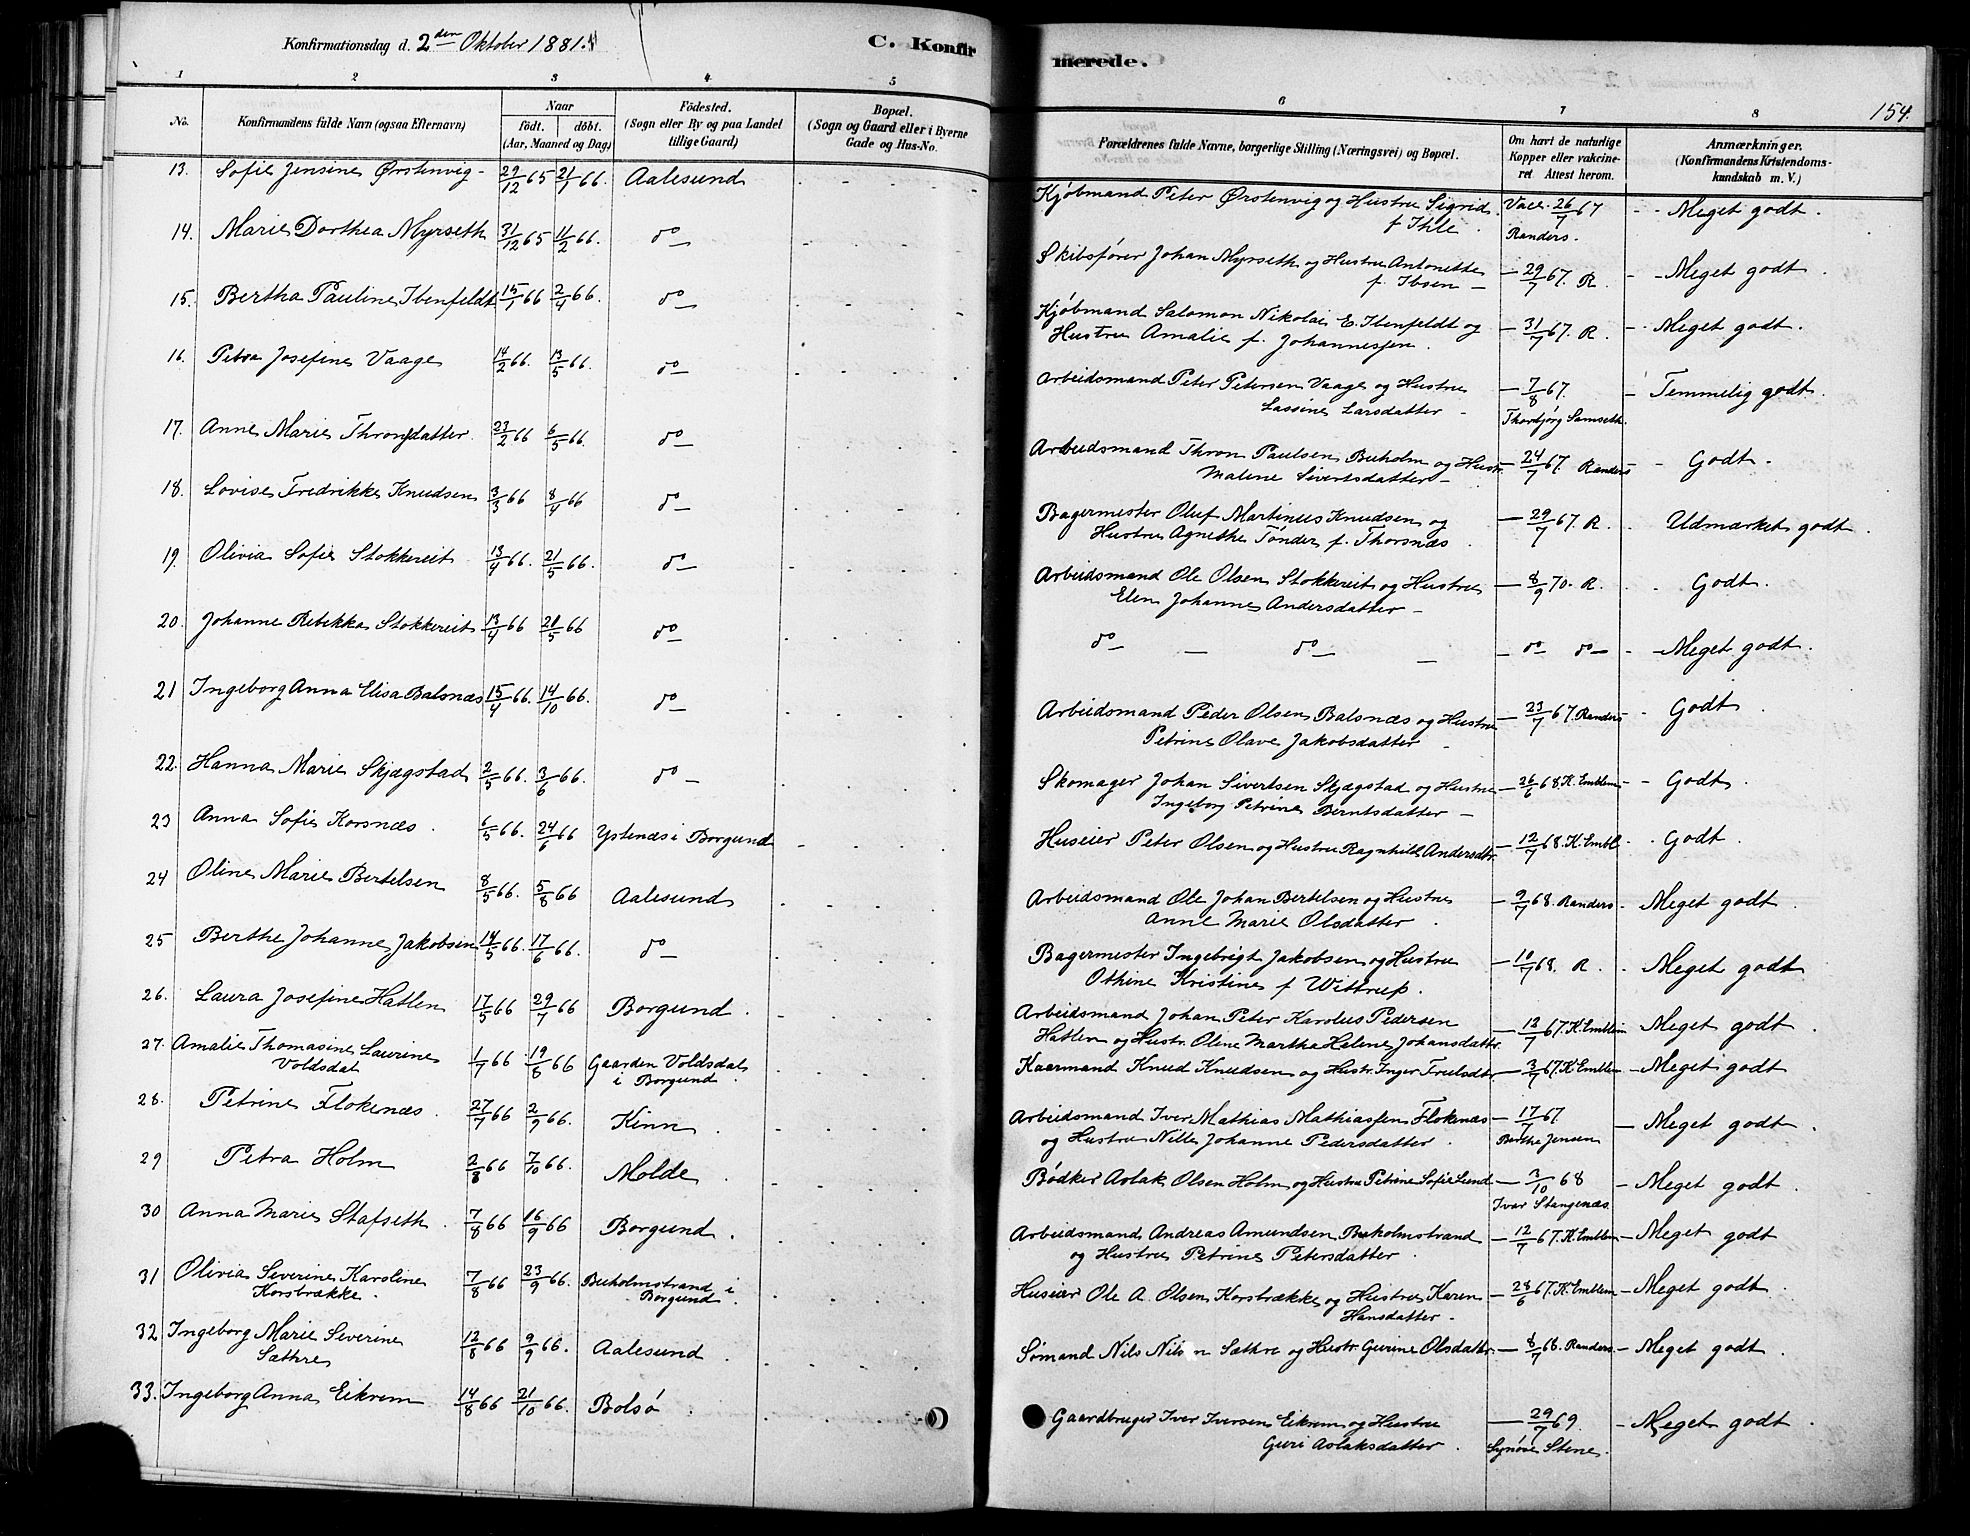 Konfirmationsdag d. 2den Oktober 1881.
C. Konfirmerede.
154.
1 2 3 4 5 6 7 8
No.
Konfirmandens fulde Navn (ogsaa Efternavn)
Naar
födt. döbt.
(Aar, Maaned og Dag)
Födested.
(Sogn eller By og paa Landet
tillige Gaard)
Bopæl.
(Sogn og Gaard eller i Byerne
Gade og Hus-No.
Forældrenes fulde Navne, borgerlige Stilling (Næringsvei) og Bopæl.
Om havt de naturlige
Kopper eller vakcine-
ret Attest herom.
Anmærkninger.
(Konfirmandens Kristendoms-
kundskab m. V.)
13. Sofie Jensine Ørstenvig - 29/12 65 21/1 66. Aalesund
Kjøbmand Peter Ørstenvig og Hustru Sigrid
f Ihle.
Vacc. 26/7 67
Randers.
Meget godt.
14. Marie Dorthea Myrseth 31/12 65 11/2 66. do
Skibsfører Johan Myrseth og Hustru Antonette
f. Ibsen -
29/7 67. R.
Meget godt
15. Bertha Pauline Ibenfeldt 15/1 66 2/4 66. do
Kjøbmand Salomon Nikolai E. Ibenfeldt og
Hustru Amalie f. Johannessen.
31/7 67. R.
Meget godt.
16. Petra Josefine Vaage 14/2 66. 13/5 66. do
Arbeidsmand Peter Petersen Vaage og Hustru
Lassine Larsdatter -
7/8 67.
Thorbjørg Samseth.
Temmelig godt.
17. Anne Marie Thronsdatter. 23/2 66 6/5 66. do
Arbeidsmand Thron Paulsen Buholm og Hustr.
Malene Sivertsdatter -
24/7 67. Randers
Godt.
18. Lovise Fredrikke Knudsen 3/3 66 8/4 66 do
Bagermester Oluf Martinus Knudsen og
Hustru Agnethe Tönder f. Thorsnæs.
29/7 67. R.
Udmærket godt.
19. Olivia Sofie Stokkereit 13/4 66. 21/5 66. do
Arbeidsmand Ole Olsen Stokkereit og Hustru
Elen Johanne Andersdatter -
8/9 70. R.
Godt.
20. Johanne Rebekka Stokkereit 13/4 66 21/5 66 do
do - do -
do do
Meget godt.
21 Ingeborg Anna Elisa Balsnæs 15/4 66. 14/10 66. do
Arbeidsmand Peder Olsen Balsnæs og Hustru
Petrine Olave Jakobsdatter -
23/7 67. Randers
Godt
22. Hanna Marie Skjægstad 2/5 66. 3/6 66. do
Skomager Johan Sivertsen Skjægstad og Hustru
Ingeborg Petrine Berntsdatter -
26/6 68. K. Emblem
Godt.
23 Anna Sofie Korsnæs. 6/5 66. 24/6 66 Ystenæs i Borgund
Huseier Peter Olsen og Hustru Ragnhild Andersdtr.
12/7 68. K. Embl.
Godt
24 Oline Marie Bertelsen 8/5 66. 5/8 66 Aalesund
Arbeidsmand Ole Johan Bertelsen og Hustru
Anne Marie Olsdatter.
9/7 68. Randers
Meget godt
25 Berthe Johanne Jakobsen 14/5 66. 17/6 66. do
Bagermester Ingebrigt Jakobsen og Hustru
Othine Kristine f Wittrup.
10/7 68. R.
Meget godt
26. Laura Josefine Hatlen 17/5 66 29/7 66 Borgund.
Arbeidsmand Johan Peter Karolus Pedersen
Hatlen og Hustr. Oline Martha Helene Johansdattr.
12/7 67. K. Emblem
Meget godt
27. Amalie Thomasine Laurine
Voldsdal
1/7 66 19/8 66 Gaarden Voldsdal
i Borgund.
Kaarmand Knud Knudsen og Hustr. Inger Trulsdtr.
3/7 67. K. Emblem
Meget godt
28. Petrine Flokenæs. 27/7 66 2/9 66. Kinn
Arbeidsmand Iver Mathias Mathiassen Flokenæs
og Hustru Nille Johanne Pedersdatter.
17/7 67
Berthe Jensen
Meget godt.
29 Petra Holm 2/8 66 7/10 66. Molde
Bødker Aslak Olsen Holm og Hustru Petrine Sofie Lund
3/10 68
Ivar Stangenæs.
Meget godt.
30 Anna Marie Stafseth. 7/8 66 16/9 66 Borgund.
Arbeidsmand Andreas Amundsen Buholmstrand
og Hustru Petrine Petersdatter.
12/7 67. K. Emblem
Meget godt
31 Olivia Severine Karoline
Korsbrække.
7/8 66 23/9 66. Buholmstrand i
Borgund.
Huseier Ole A. Olsen Korsbrække og Hustru Karen
Hansdatter.
28/6 67. K. Emblem
Meget godt
32 Ingeborg Marie Severine
Sæthre
12/8 66 9/9 66. Aalesund
Sømand Nils Nilsen Sæthre og Hustr. Gurine Olsdatter.
8/7 68. Randers.
Meget godt
33. Ingeborg Anna Eikrem 14/8 66 21/10 66. Bolsø
Gaardbruger Iver Iversen Eikrem og Hustru
Guri Aslaksdatter.
29/7 69.
Synöve Stene.
Meget godt.